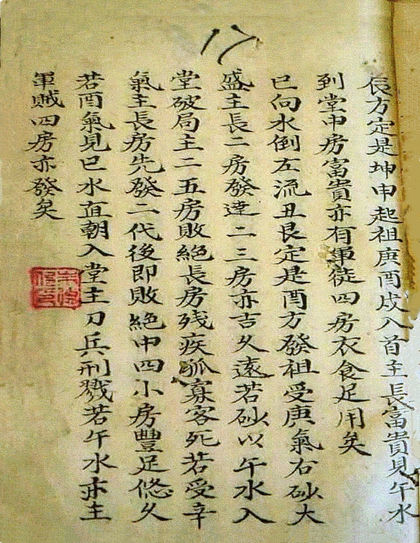 17
辰方定是坤申起祖庚酉戌入首主長富貴見午水
到堂中房富貴亦有軍徒四房衣食足用矣
巳向水倒左流丑艮定是酉方發祖受庚氣右砂大
盛主長二房發達二三房亦吉久遠若砂以午水入
堂破局主二五房敗絕長房残疾孤寡客死若受辛
氣主長房先發二代後即敗絕中四小房豐足悠久
若酉氣見巳水直朝入堂主刀兵刑戮若午水亦主
軍賊四房亦發矣